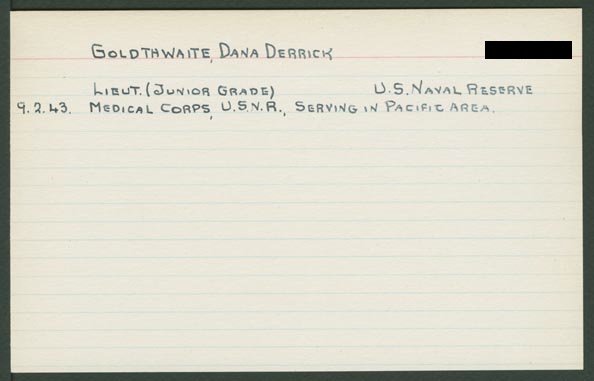 GOLDTHWAITE, DANA DERRICK
LIEUT. (JUNIOR GRADE) U.S. NAVAL RESERVE
9.2.43. MEDICAL CORPS, U.S.N.R., SERVING IN PACIFIC AREA.